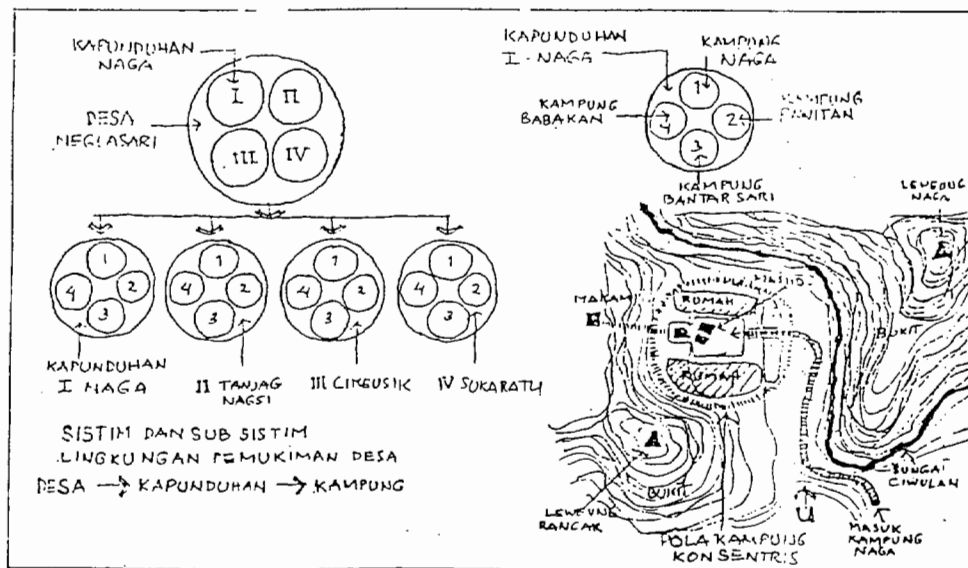 KAPUNDUHAN
NAGA
DESA
NEGLASARI
I
II
III
IV
1
2
3
4
1
2
3
4
1
2
3
4
1
2
3
4
KAPUNDUHAN
I NAGA
II TANJAG
NAGSI
III CIKEUSIK
IV SUKARATU
SISTIM DAN SUB SISTIM
LINGKUNGAN PEMUKIMAN DESA
DESA → KAPUNDUHAN → KAMPUNG
KAPUNDUHAN
I - NAGA
KAMPUNG
NAGA
KAMPUNG
BABAKAN
KAMPUNG
KAMPUNG
BANTAR SARI
1
2
3
4
LEWEUNG
NAGA
MAKAM
RUMAH
MASJID
RUMAH
BUKIT
A
BUKIT
LEWEUNG
RANCAK
POLA KAMPUNG
KONSENTRIS
U
SUNGAI
CIWULAN
MASUK
KAMPUNG
NAGA